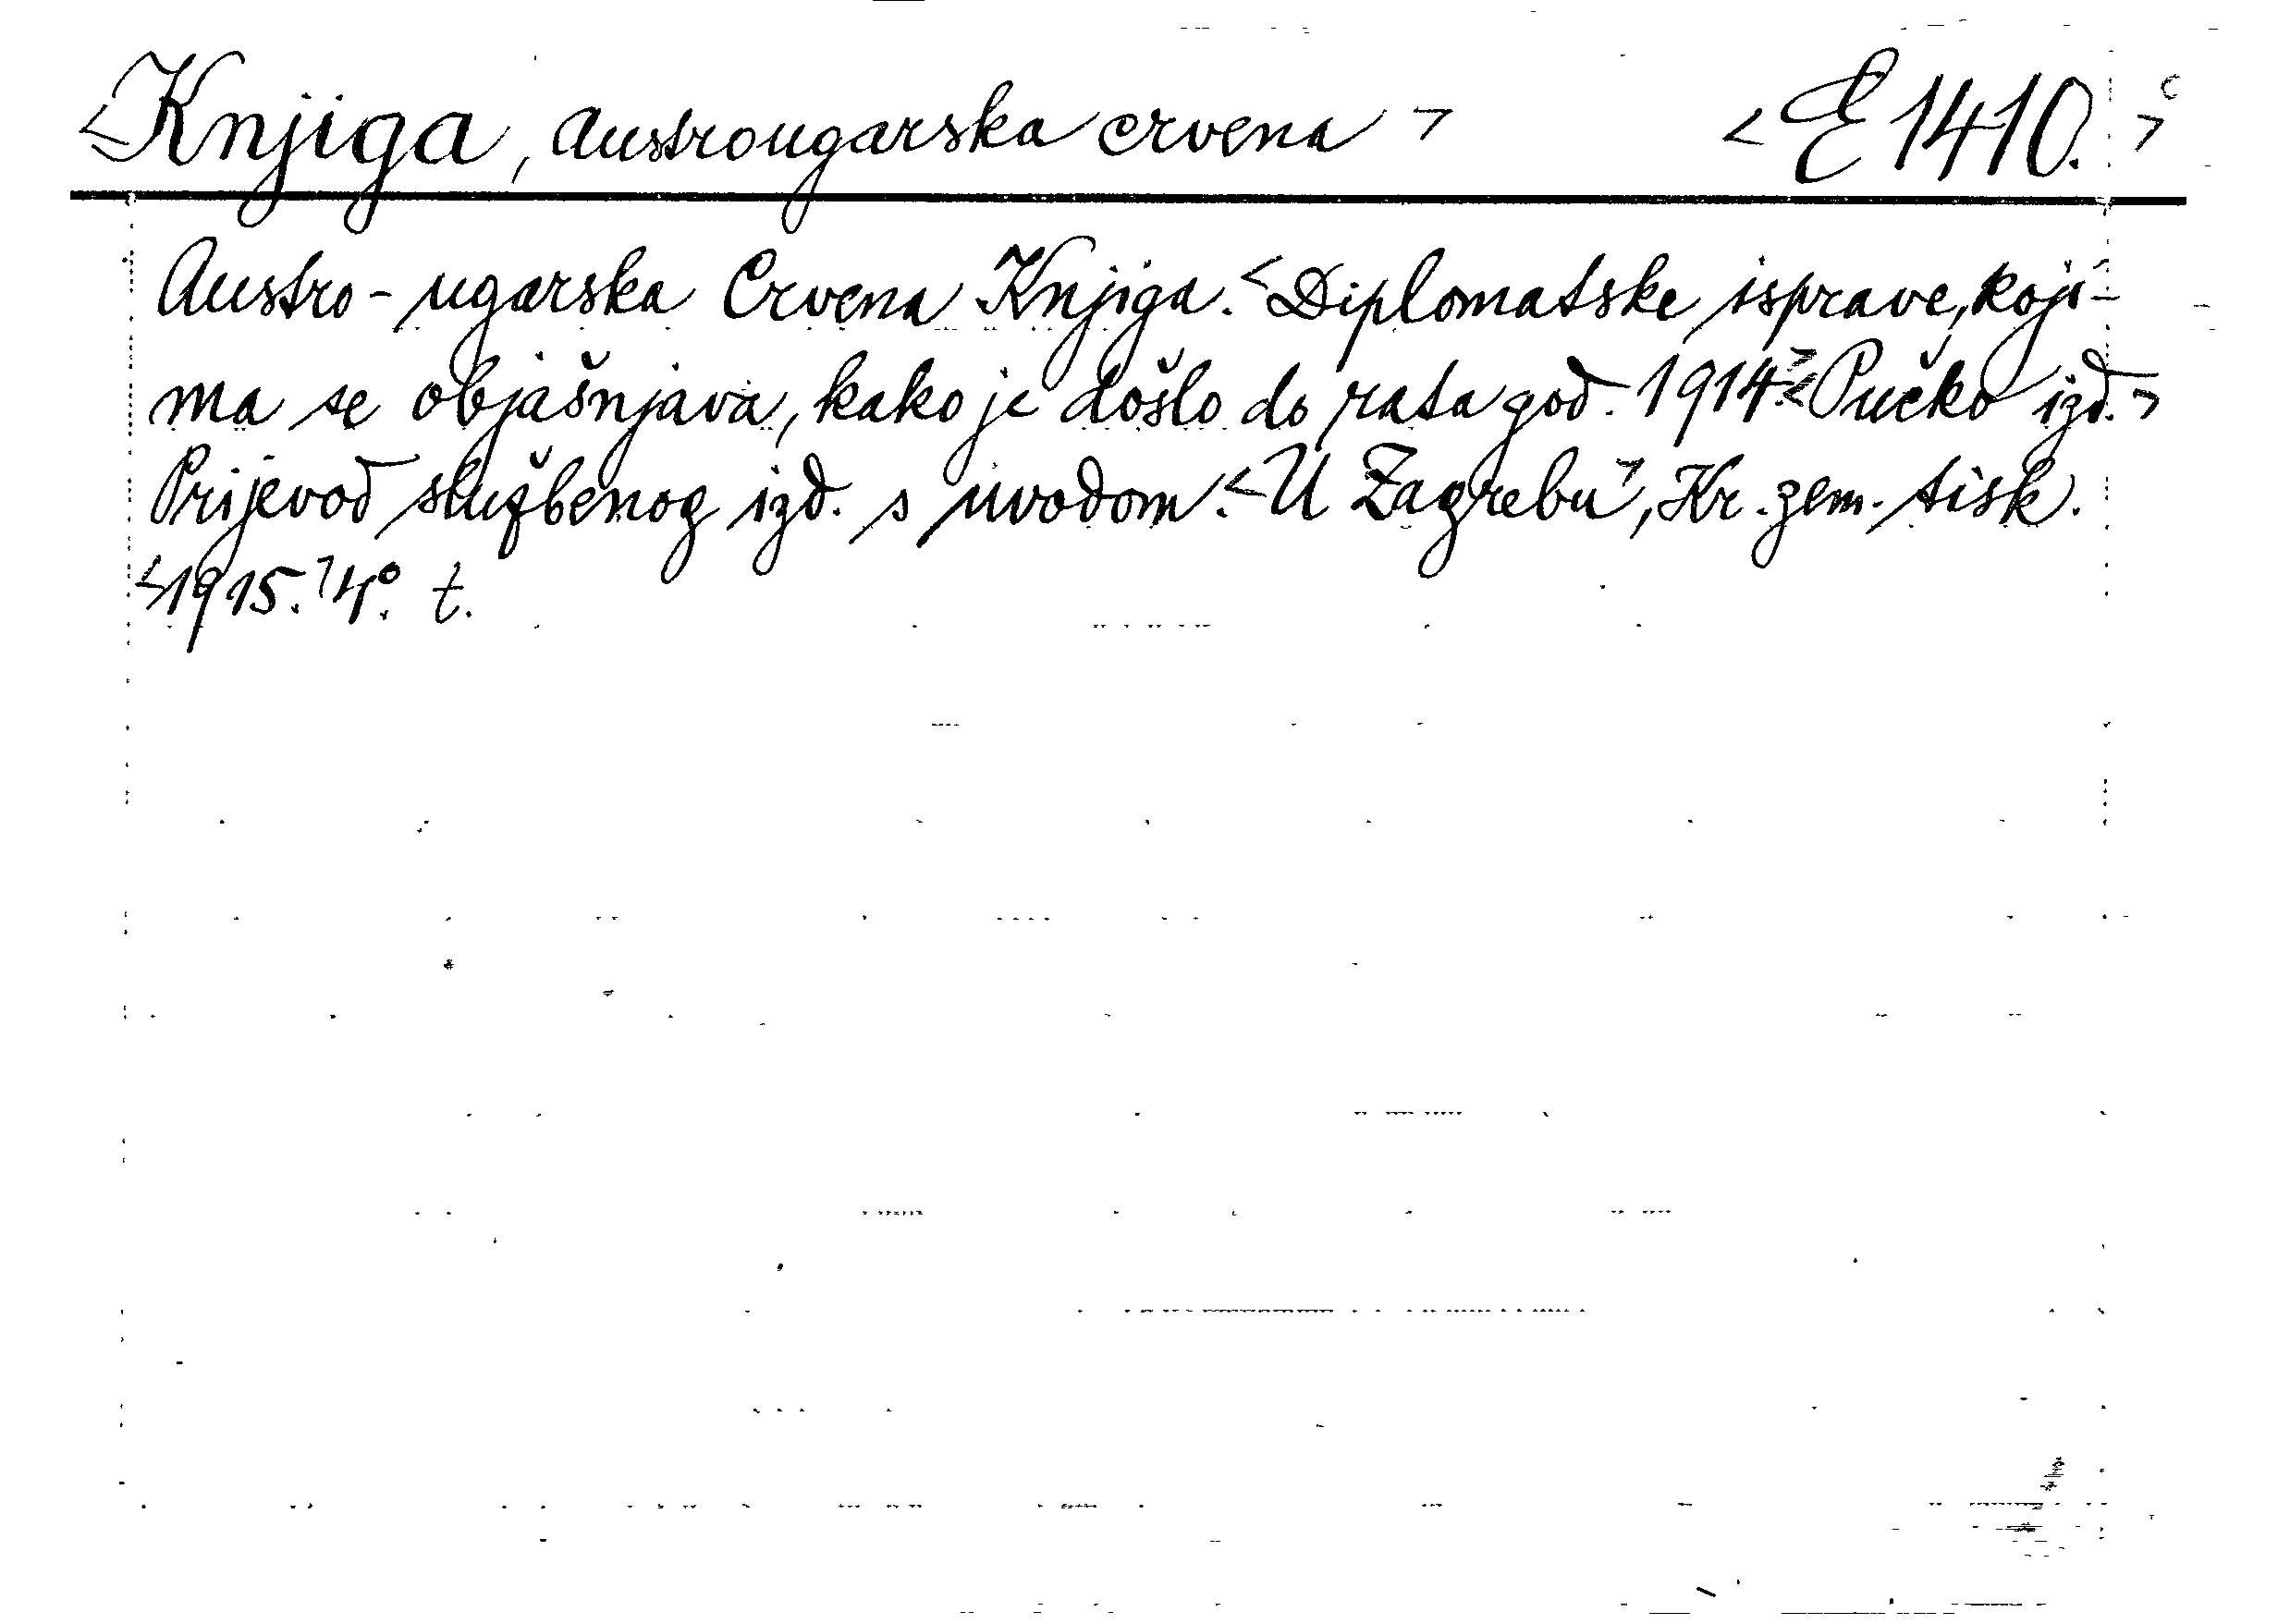 <Knjiga, austrougarska crvena> <E 1410.>
Austro-ugarska Crvena Knjiga. <Diplomatske isprave, koji-
ma se objašnjava, kako je došlo do rata god. 1914.> <Pučko izd.>
Prijevod službenog izd. s uvodom. <U Zagrebu>, Kr. zem. tisk.
<1915.> 4°. t.